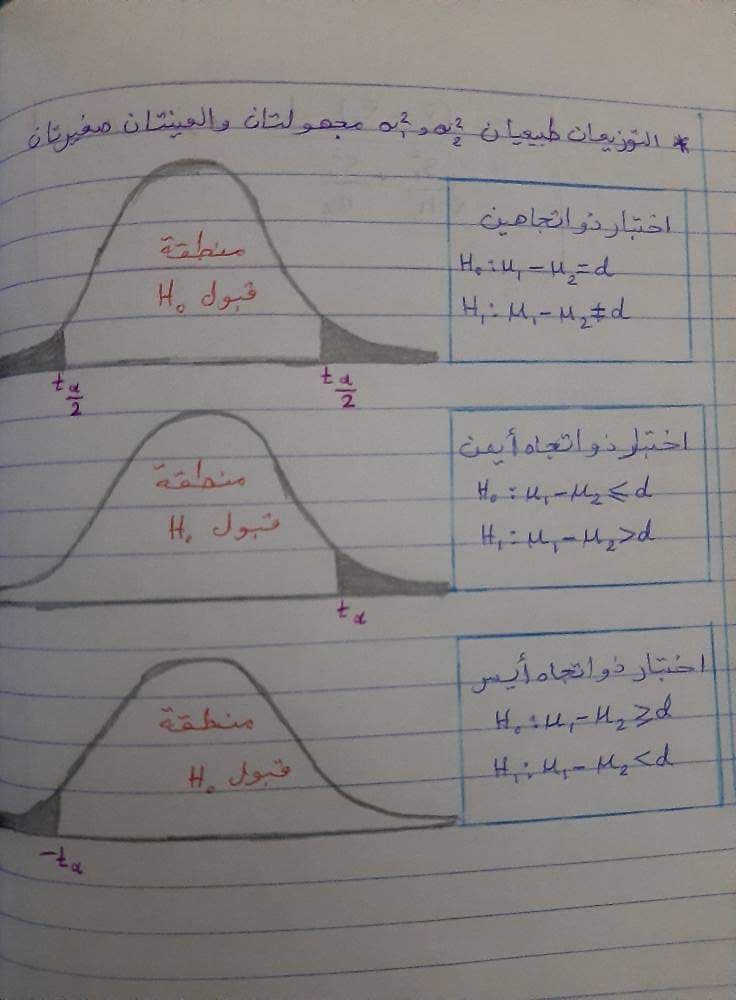 * التوزيعات طبيعيان σ₁² و σ₂² مجهولتان والعينتان صغيرتان
اختبار ذو اتجاهين
H₀: μ₁ - μ₂ = d
H₁: μ₁ - μ₂ ≠ d
منطقة
قبول H₀
t α/2
t α/2
اختبار ذو اتجاه أيمن
H₀: μ₁ - μ₂ ≤ d
H₁: μ₁ - μ₂ > d
منطقة
قبول H₀
tα
اختبار ذو اتجاه أيسر
H₀: μ₁ - μ₂ ≥ d
H₁: μ₁ - μ₂ < d
منطقة
قبول H₀
-tα